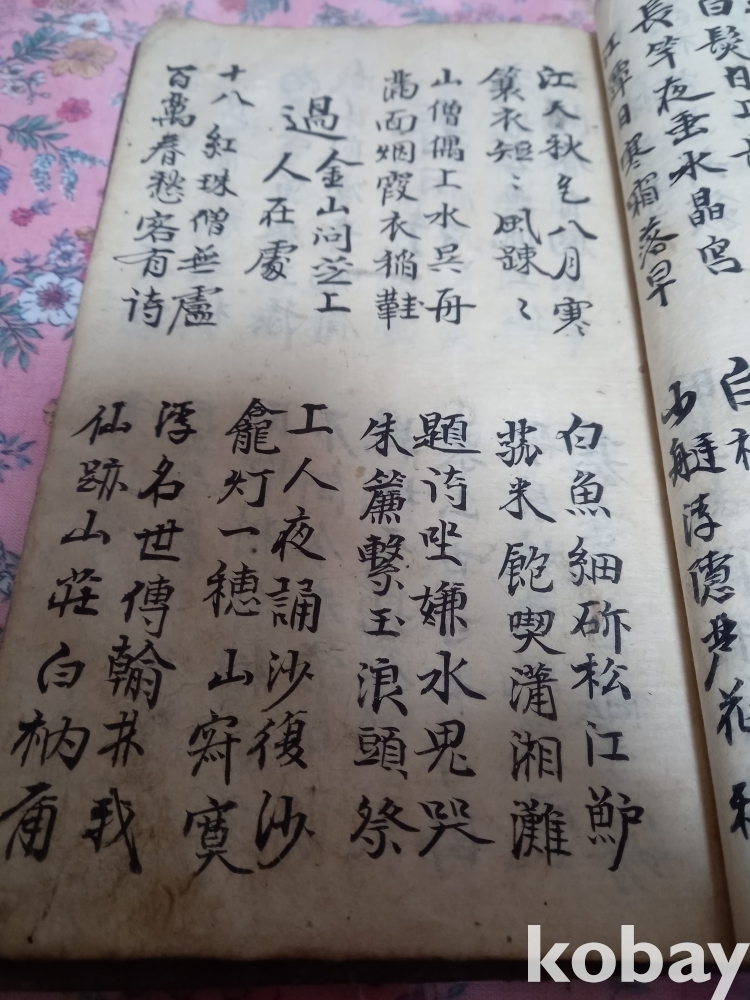 長竿夜垂水晶宮
江潭日寒霜落早
江天秋色八月寒
簑衣短〻風踈〻
山僧偶工水吳舟
滿面烟霞衣稲鞋
過金山问芝工
人在處
十八紅珠僧無廬
百萬春愁客有诗
白魚細斫松江鲈
菰米飽喫瀟湘灘
題诗坐嫌水鬼哭
朱簾繫玉浪頭祭
工人夜誦沙復沙
龕灯一穗山寞
浮名世傳翰林我
仙跡山莊白衲
kobay